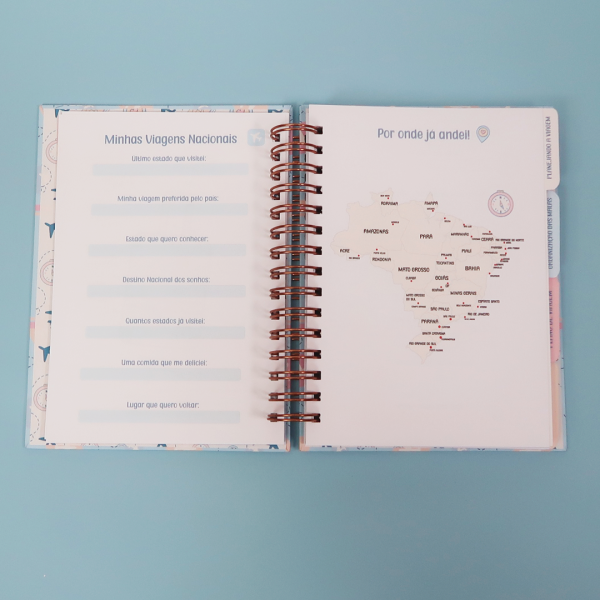 Minhas Viagens Nacionais
Último estado que visitei:
Minha viagem preferida pelo país:
Estado que quero conhecer:
Destino Nacional dos sonhos:
Quantos estados já visitei:
Uma comida que me deliciei:
Lugar que quero voltar:
Por onde já andei!
RORAIMA
AMAPÁ
AMAZONAS
PARÁ
MARANHÃO
CEARÁ
RIO GRANDE DO NORTE
ACRE
RONDÔNIA
PIAUÍ
TOCANTINS
MATO GROSSO
BAHIA
GOIÁS
MATO GROSSO
DO SUL
MINAS GERAIS
ESPÍRITO SANTO
SÃO PAULO
RIO DE JANEIRO
PARANÁ
SANTA CATARINA
RIO GRANDE DO SUL
PLANEJANDO A VIAGEM
ORGANIZAÇÃO DAS MALAS